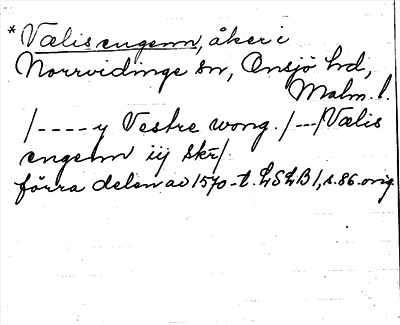 *Vælis engenn, åker i
Norrvidinge sn, Onsjö hd,
Malm. l.
/----y Vestre wong. /---/Vælis
engenn iij skr/.
förra delen av 1570-t. LSLB 1, s. 86. orig.